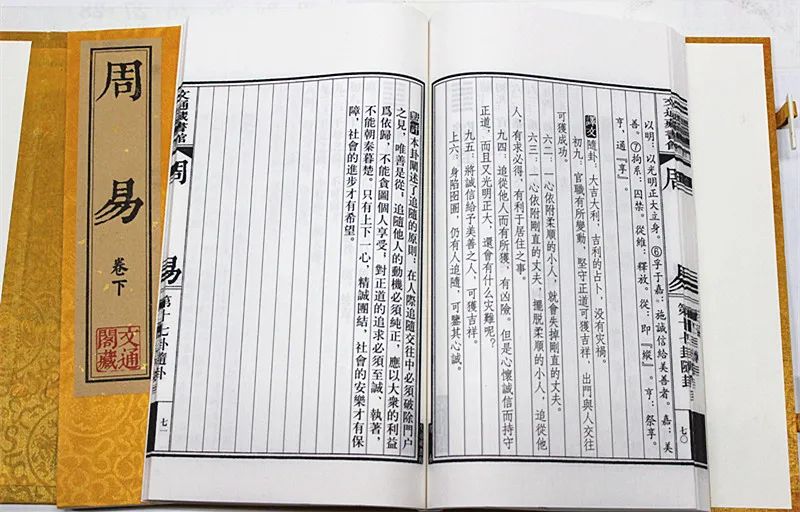 周易
卷下
文通
閣藏
文通藏書館
周易
第十七卦隨卦
七〇
以明：以光明正大立身。⑥孚于嘉：施誠信給美善者。嘉：美
善。⑦拘系：囚禁。從維：釋放。從：即『縱』。亨：祭享。
亨，通『享』。
譯文
隨卦，大吉大利，吉利的占卜，没有灾禍。
初九：官職有所變動，堅守正道可獲吉祥，出門與人交往
可獲成功。
六二：一心依附柔順的小人，就會失掉剛直的丈夫。
六三：一心依附剛直的丈夫，擺脫柔順的小人，追從他
人，有求必得，有利于居住之事。
九四：追從他人而有所獲，有凶險。但是心懷誠信而持守
正道，而且又光明正大，還會有什么灾難呢？
九五：將誠信給予美善之人，可獲吉祥。
上六：身陷囹圄，仍有人追隨，可鑒其心誠。
本卦闡述了追隨的原則：在人際追隨交往中必須破除門户
之見，唯善是從；追隨他人的動機必須純正，應以大衆的利益
爲依歸，不能貪圖個人享受；對正道的追求必須至誠、執著，
不能朝秦暮楚。只有上下一心，精誠團結，社會的安樂才有保
障，社會的進步才有希望。
文通藏書館
周易
第十七卦隨卦
七一